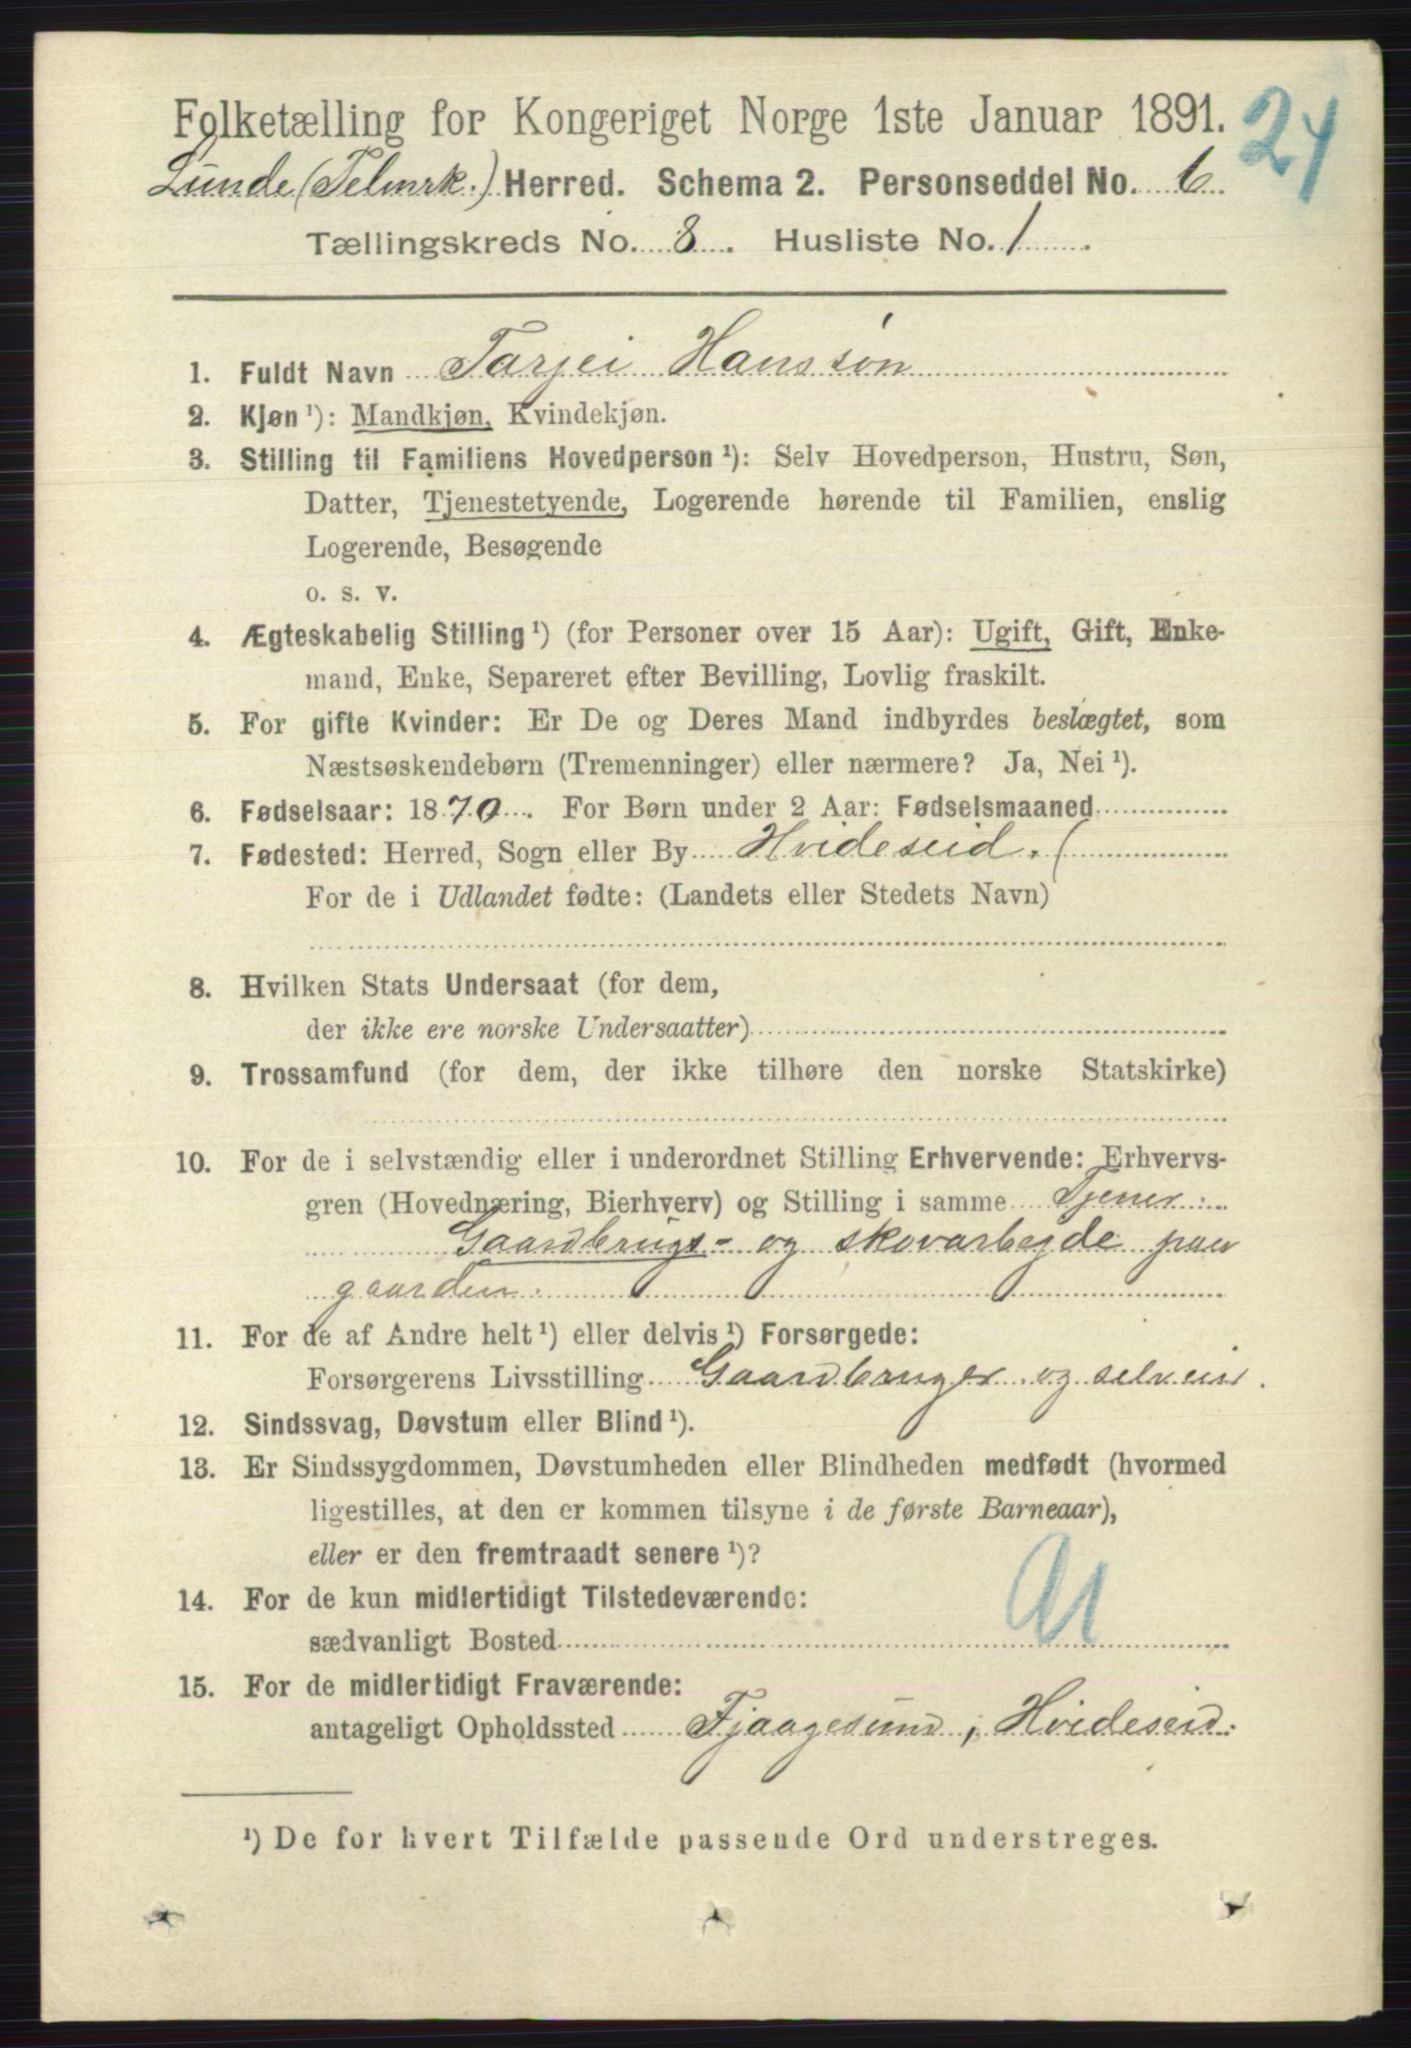 Folketælling for Kongeriget Norge 1ste Januar 1891.
24
Lunde (Telmrk.) Herred. Schema 2. Personseddel No. 6.
Tællingskreds No. 8. Husliste No. 1.
1. Fuldt Navn Tarjei Hanssøn
2. Kjøn¹): Mandkjøn, Kvindekjøn.
3. Stilling til Familiens Hovedperson¹): Selv Hovedperson, Hustru, Søn,
Datter, Tjenestetyende, Logerende hørende til Familien, enslig
Logerende, Besøgende
o. s. v.
4. Ægteskabelig Stilling¹) (for Personer over 15 Aar): Ugift, Gift, Enke-
mand, Enke, Separeret efter Bevilling, Lovlig fraskilt.
5. For gifte Kvinder: Er De og Deres Mand indbyrdes beslægtet, som
Næstsøskendebørn (Tremenninger) eller nærmere? Ja, Nei¹).
6. Fødselsaar: 1870. For Børn under 2 Aar: Fødselsmaaned
7. Fødested: Herred, Sogn eller By Hvideseid. (
For de i Udlandet fødte: (Landets eller Stedets Navn)
8. Hvilken Stats Undersaat (for dem,
der ikke ere norske Undersaatter)
9. Trossamfund (for dem, der ikke tilhøre den norske Statskirke)
10. For de i selvstændig eller i underordnet Stilling Erhvervende: Erhvervs-
gren (Hovednæring, Bierhverv) og Stilling i samme Tjener:
Gaardbrugs- og skovarbejde paa
gaarden.
11. For de af Andre helt¹) eller delvis¹) Forsørgede:
Forsørgerens Livsstilling Gaardbruger og selveier.
12. Sindssvag, Døvstum eller Blind¹).
13. Er Sindssygdommen, Døvstumheden eller Blindheden medfødt (hvormed
ligestilles, at den er kommen tilsyne i de første Barneaar),
eller er den fremtraadt senere¹)?
14. For de kun midlertidigt Tilstedeværende:
sædvanligt Bosted
15. For de midlertidigt Fraværende:
antageligt Opholdssted Fjaagesund, Hvideseid.
¹) De for hvert Tilfælde passende Ord understreges.